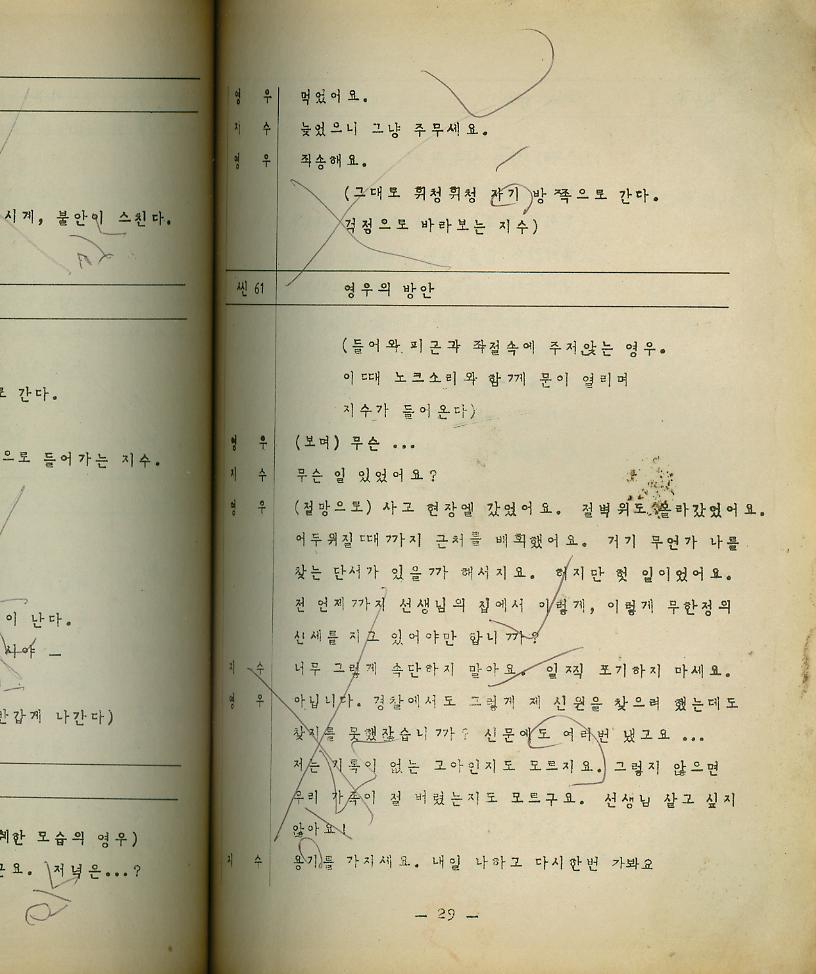 시계, 불안이 스친다.
간다.
으로 들어가는 지수.
이 난다.
갑게 나간다)
한 모습의 영우)
요. 저녁은...?
영 우 먹었어요.
지 수 늦었으니 그냥 주무세요.
영 우 죄송해요.
(그대로 휘청휘청 자기 방쪽으로 간다.
걱정으로 바라보는 지수)
씬 61 영우의 방안
(들어와 피곤과 좌절속에 주저앉는 영우.
이때 노크소리와 함께 문이 열리며
지수가 들어온다)
영 우 (보며) 무슨 ...
지 수 무슨 일 있었어요?
영 우 (절망으로) 사고 현장엘 갔었어요. 절벽위도 올라갔었어요.
어두워질때까지 근처를 배회했어요. 거기 무언가 나를
찾는 단서가 있을까 해서지요. 허지만 헛 일이었어요.
전 언제까지 선생님의 집에서 이렇게, 이렇게 무한정의
신세를 지고 있어야만 합니까?
지 수 너무 그렇게 속단하지 말아요. 일찍 포기하지 마세요.
영 우 아닙니다. 경찰에서도 그렇게 제 신원을 찾으려 했는데도
찾지를 못했잖습니까? 신문에도 여러번 냈고요 ...
저는 기록이 없는 고아인지도 모르지요. 그렇지 않으면
우리 가족이 절 버렸는지도 모르구요. 선생님 살고 싶지
않아요!
지 수 용기를 가지세요. 내일 나하고 다시한번 가봐요
— 29 —